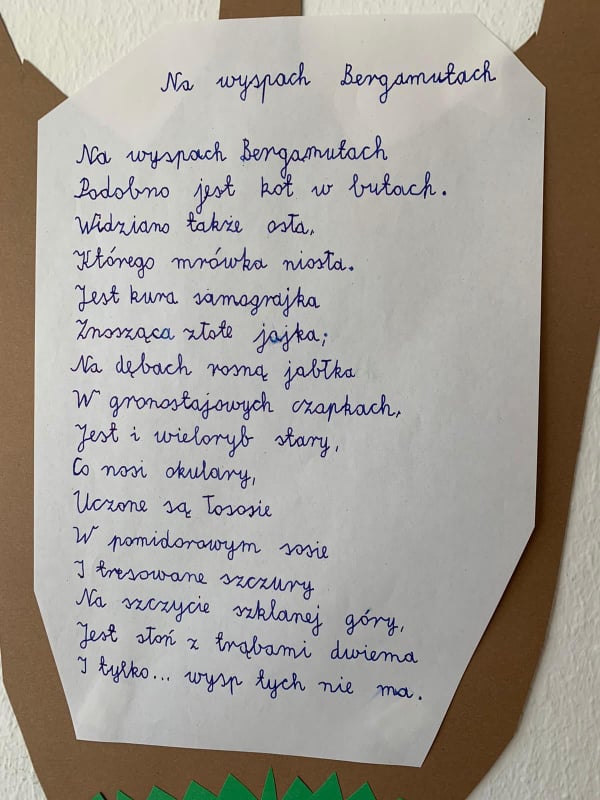 Na wyspach Bergamutach
Na wyspach Bergamutach
Podobno jest kot w butach.
Widziano także osła,
Którego mrówka niosła.
Jest kura samograjka
Znosząca złote jajka;
Na dębach rosną jabłka
W gronostajowych czapkach,
Jest i wieloryb stary,
Co nosi okulary,
Uczone są łososie
W pomidorowym sosie
I tresowane szczury
Na szczycie szklanej góry,
Jest słoń z trąbami dwiema
I tylko... wysp tych nie ma.